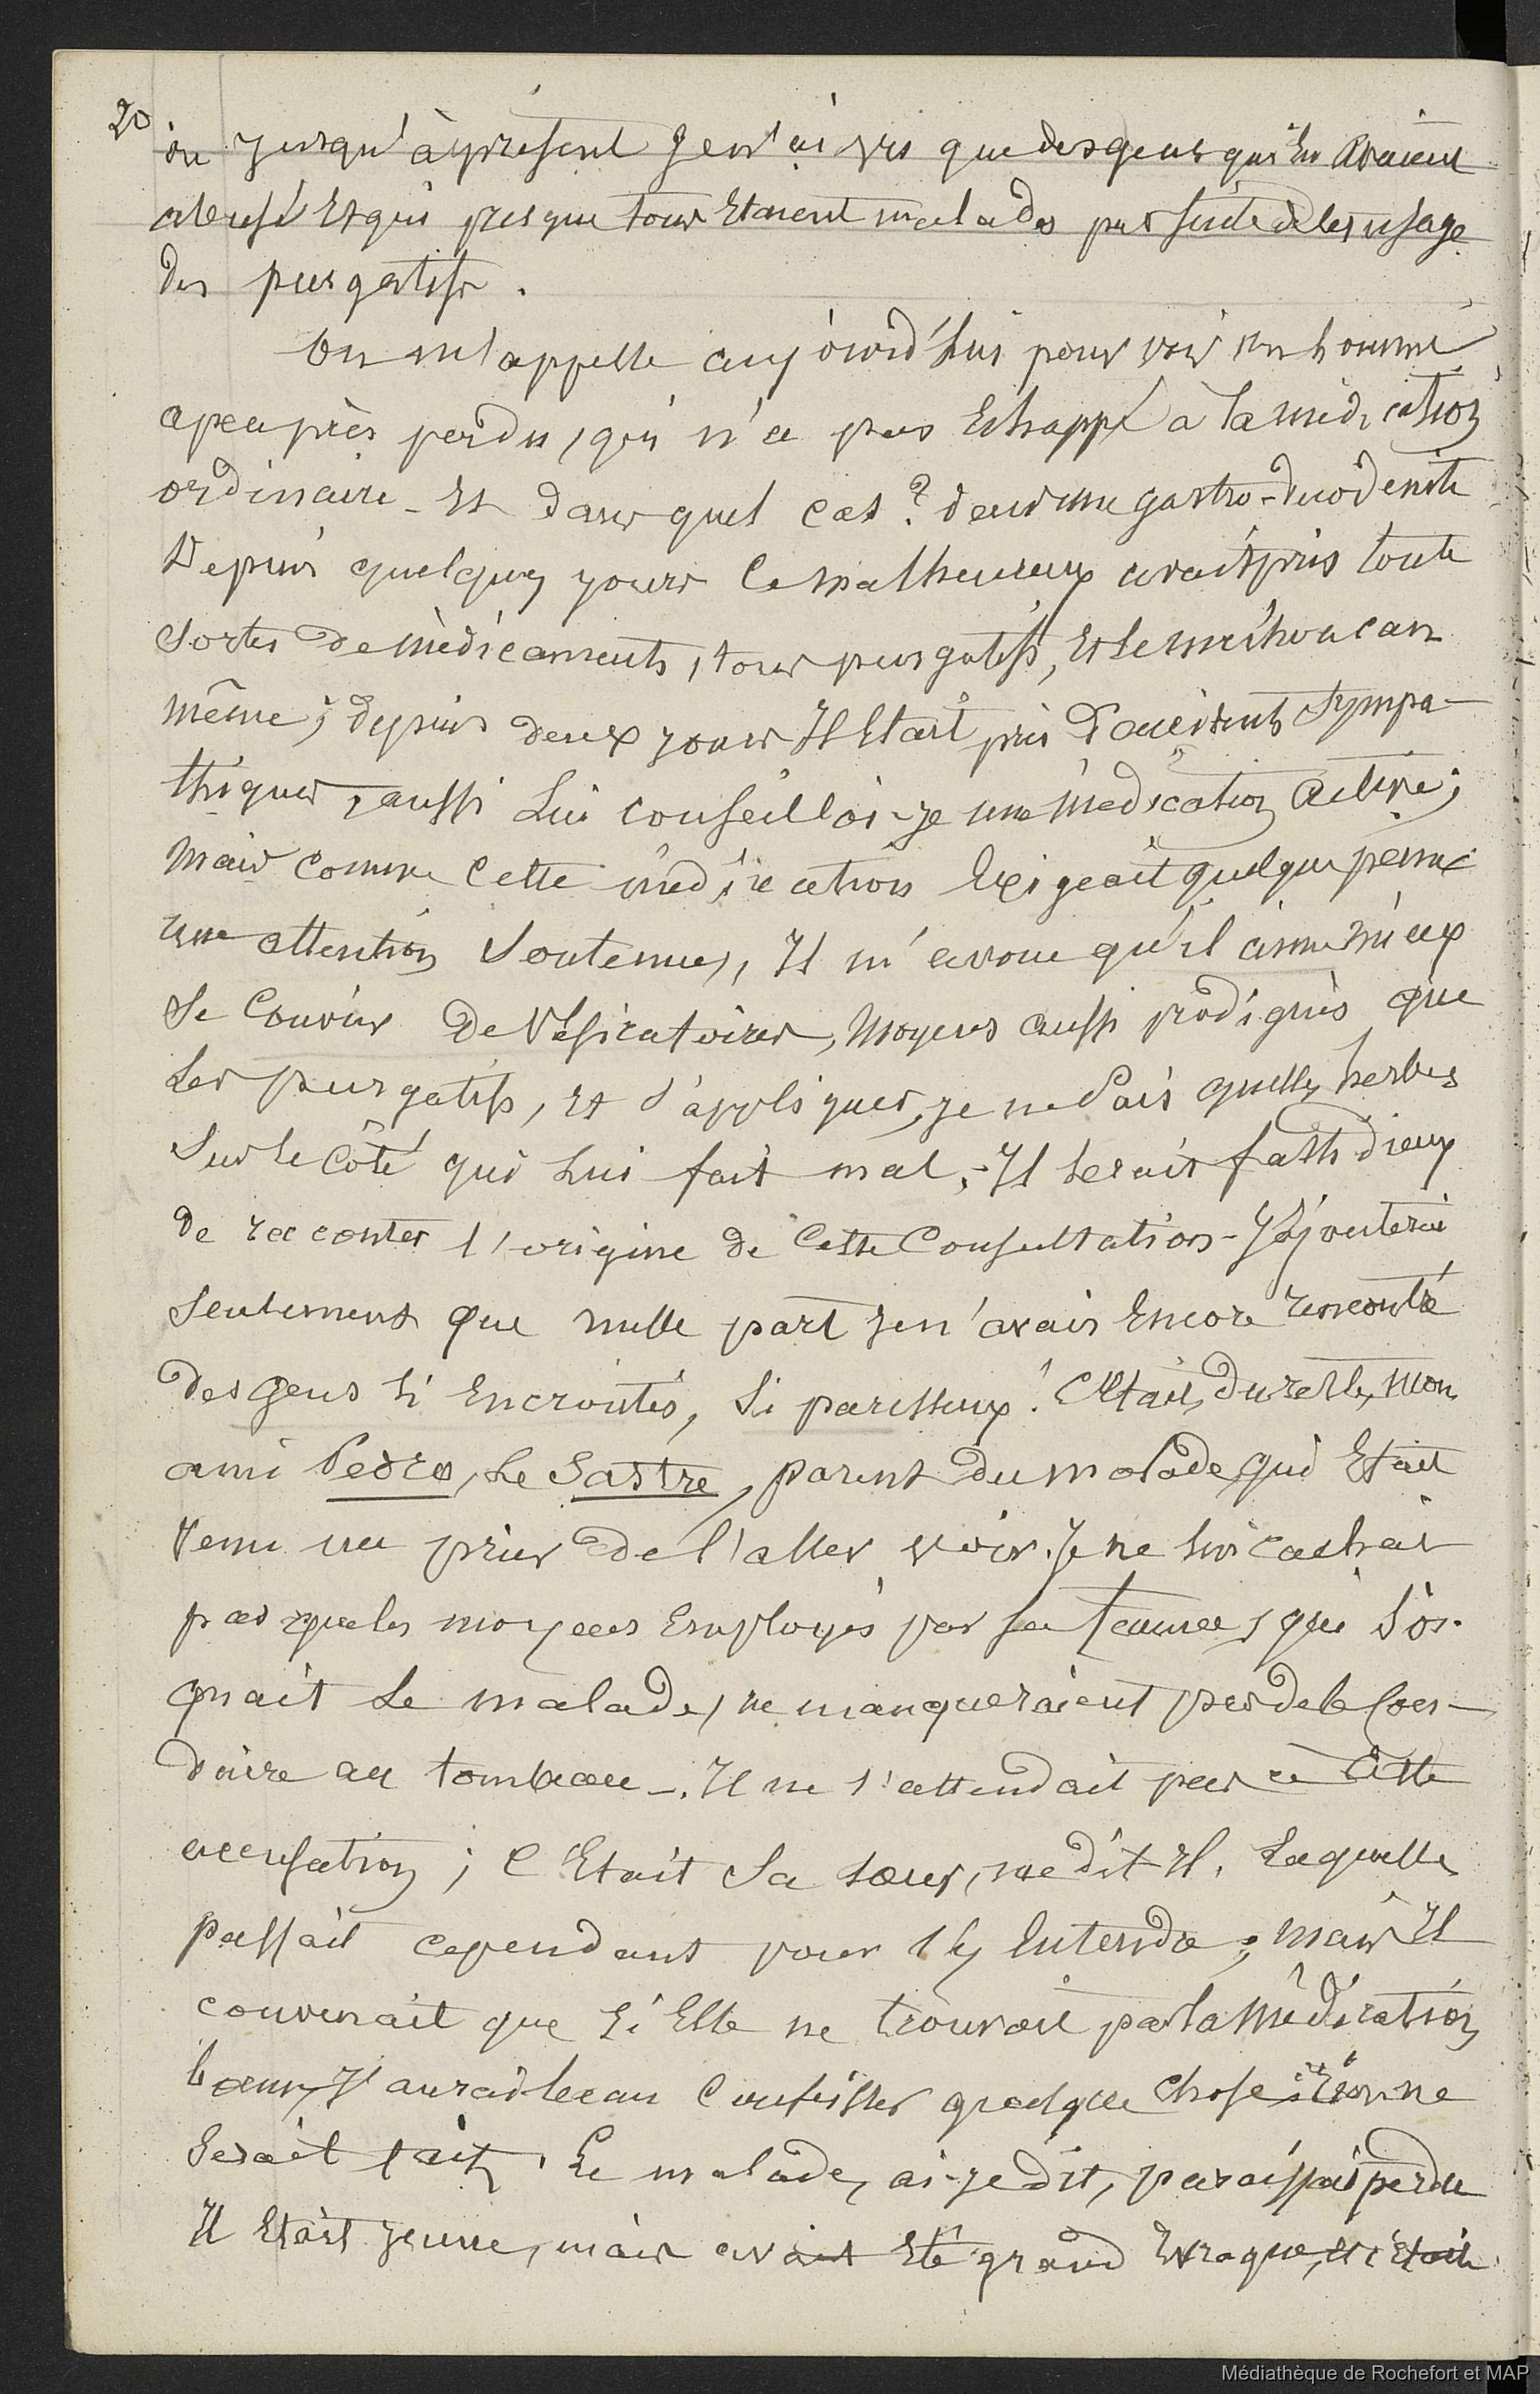 20
ou jusqu'à présent je n'ai vu que des gens qui en avaient
abusé et qui presque tous etaient malades par suite de les usage
des purgatifs.
On m'appelle aujourd'hui pour voir un homme
apeuprès perdu, qui n'a pas echappé a la médication
ordinaire - et dans quel cas? dans une gastro-duodenite
Depuis quelques jours le malheureux avait pris toute
sortes de médicaments, tous purgatifs, et le méchoacan
même; depuis deux jours il etait pris d'accidents sympa-
thiques, aussi lui conseillai-je une médication active;
mais comme cette médication exigeait quelque peine
une attention soutenue, il m'avoue qu'il aime mieux
se couvrir de vésicatoires, moyens aussi prodigués que
les purgatifs, et s'appliquer, je ne sais quelles herbes
sur le côté qui lui fait mal. - Il serait fastidieux
de raconter l'origine de cette consultation - J'ajouterai
seulement que nulle part je n'avais encore rencontré
des gens si encroutés, si paresseux! C'etait, du reste, mon
ami Pedro, le Sastre, parent du malade, qui etait
venu me prier de l'aller voir. Je ne lui cachai
pas que les moyens employés par sa femme, qui soi-
gnait le malade, ne manqueraient pas de le con-
duire au tombeau -. Il ne s'attendait pas à cette
accusation; c'etait sa sœur, me dit-il. Laquelle
passait cependant pour s'y entendre; mais il
convenait que si elle ne trouvait pas la médication
bonne, j'aurais beau conseiller quelque chose rien ne
serait fait. Le malade, ai-je dit, paraissait perdu
Il etait jeune, mais avait eté grand ivrogne, et c'etait
Médiathèque de Rochefort et MAP